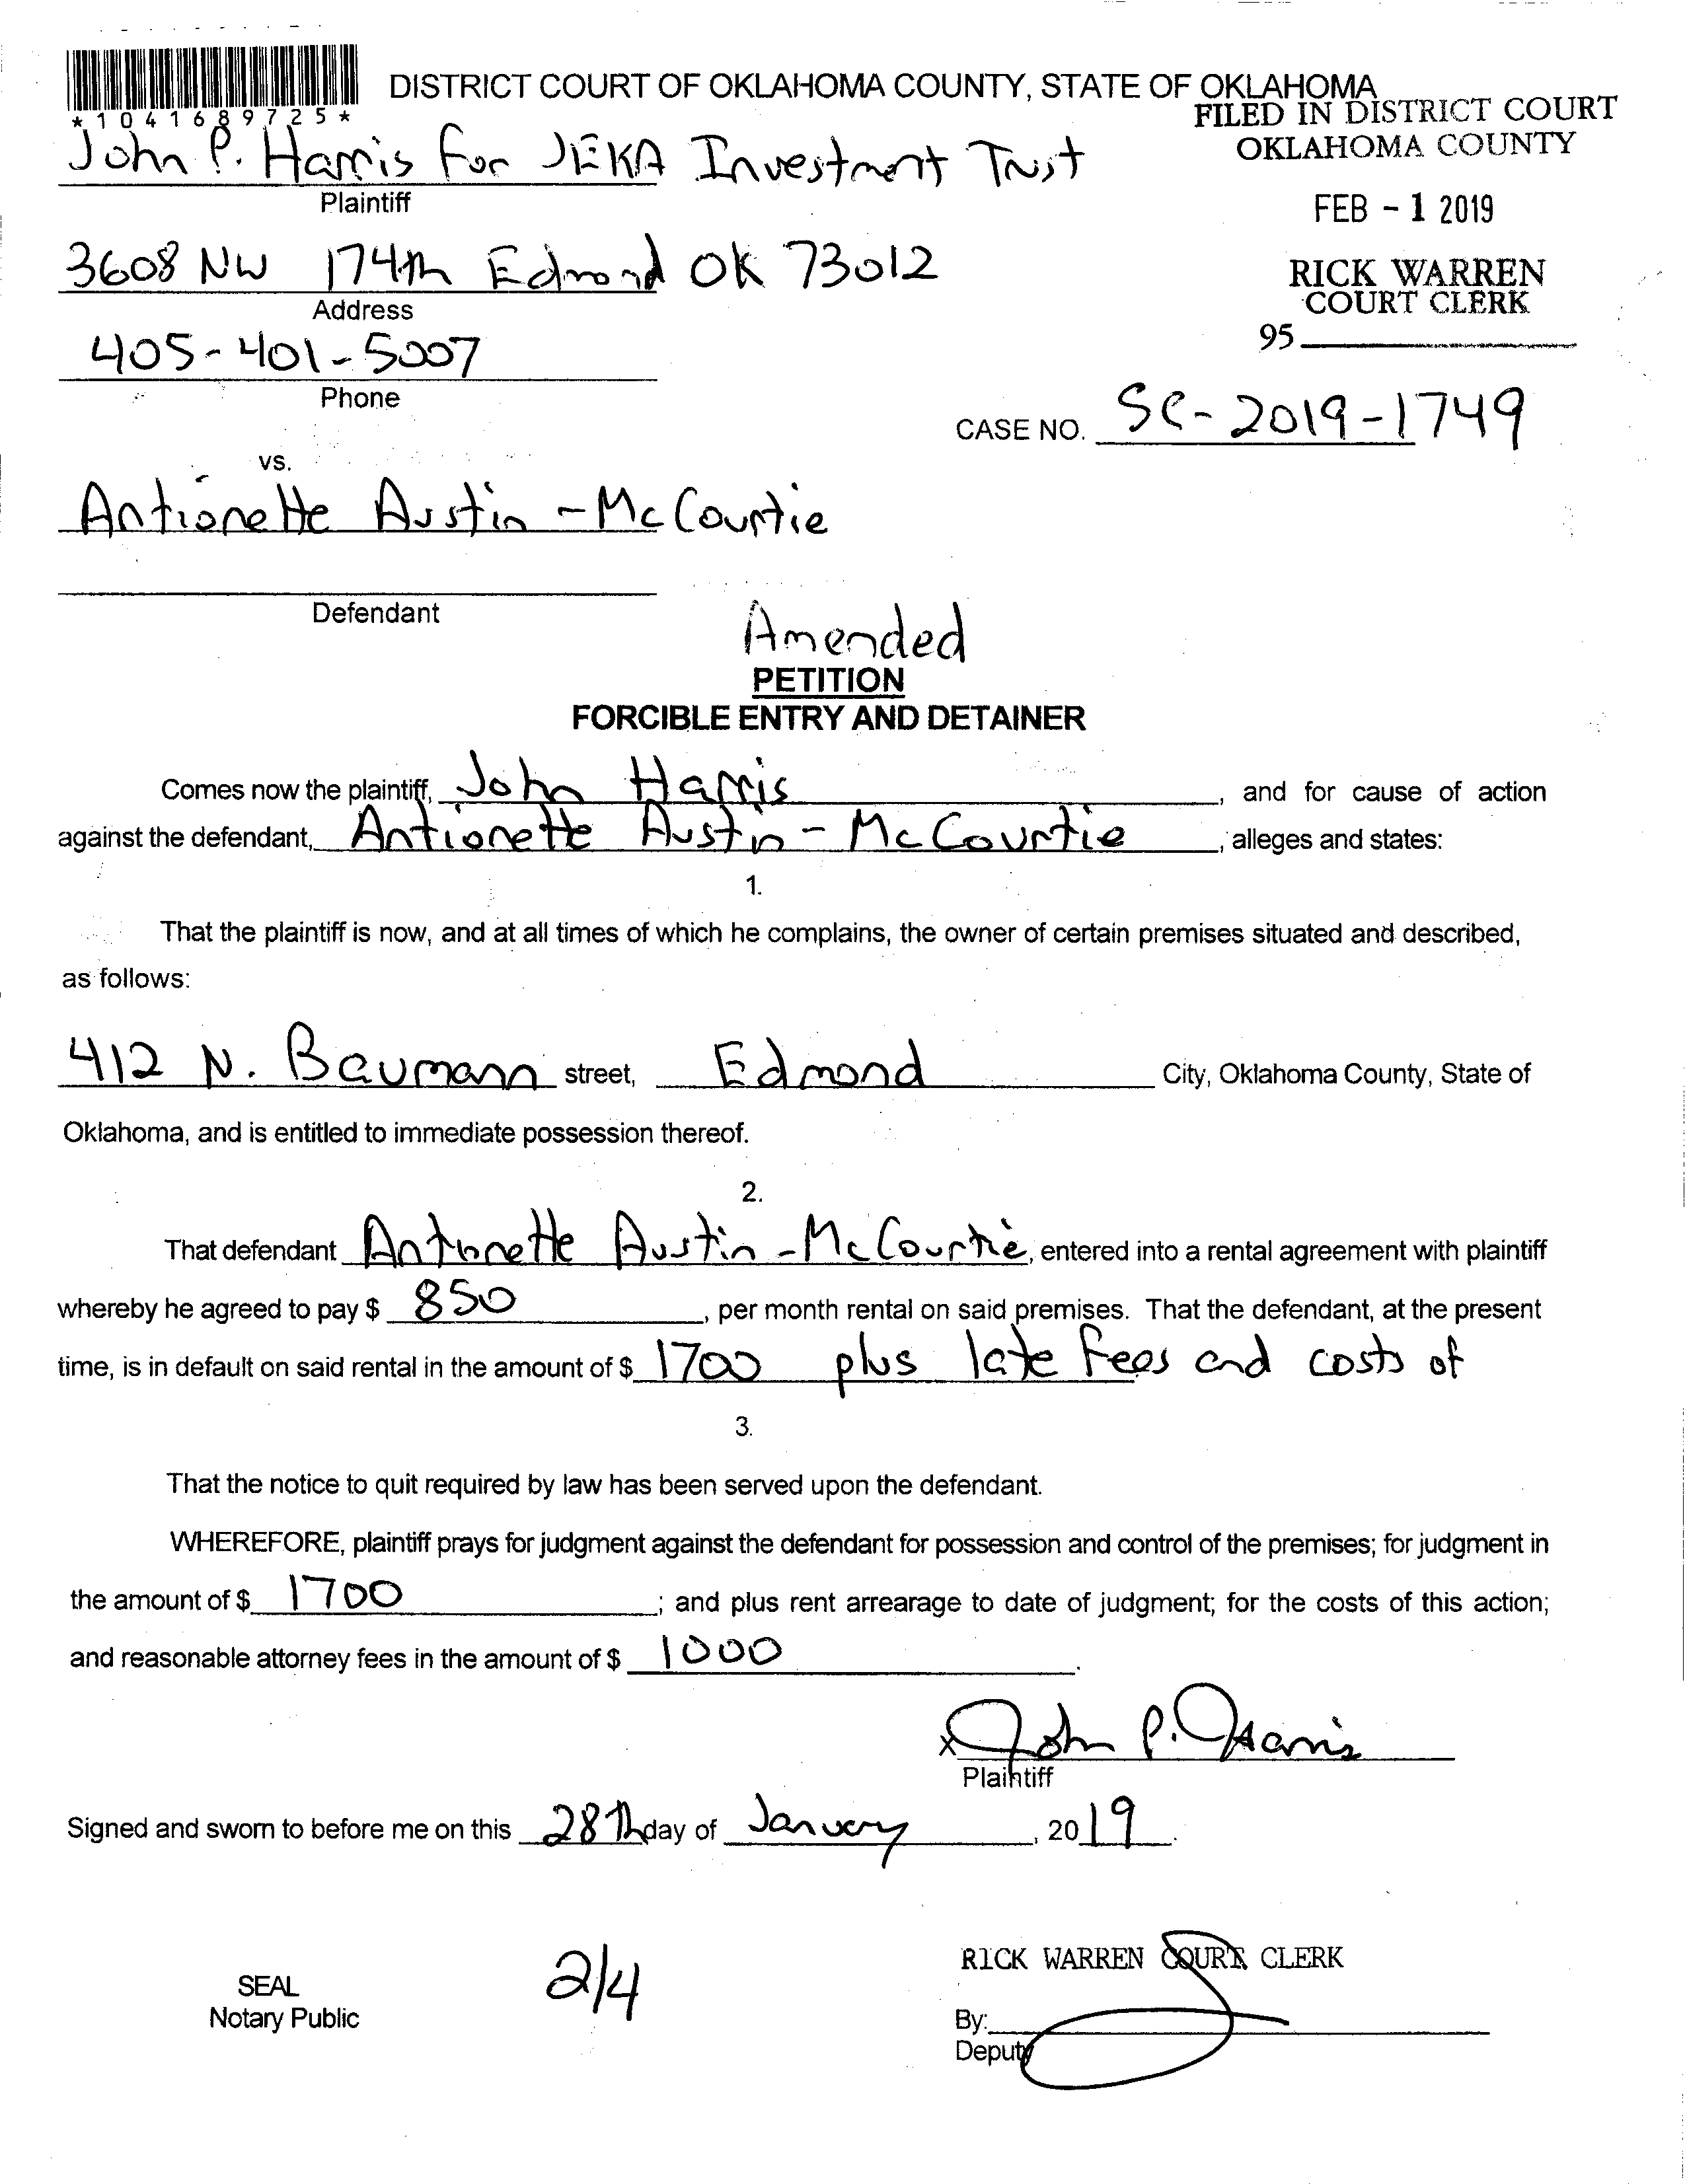 DISTRICT COURT OF OKLAHOMA COUNTY, STATE OF OKLAHOMA
*1041689725*
FILED IN DISTRICT COURT
OKLAHOMA COUNTY
John P. Harris For JEKA Investment Trust
Plaintiff
FEB - 1 2019
3608 NW 174th Edmond OK 73012
Address
RICK WARREN
COURT CLERK
95
405-401-5007
Phone
CASE NO. SC-2019-1749
vs.
Antionette Austin-McCourtie
Defendant
Amended
PETITION
FORCIBLE ENTRY AND DETAINER
Comes now the plaintiff, John Harris, and for cause of action
against the defendant, Antionette Austin-McCourtie, alleges and states:
1.
That the plaintiff is now, and at all times of which he complains, the owner of certain premises situated and described,
as follows:
412 N. Baumann street, Edmond City, Oklahoma County, State of
Oklahoma, and is entitled to immediate possession thereof.
2.
That defendant Antionette Austin-McCourtie, entered into a rental agreement with plaintiff
whereby he agreed to pay $ 850, per month rental on said premises. That the defendant, at the present
time, is in default on said rental in the amount of $ 1700 plus late fees and costs of
3.
That the notice to quit required by law has been served upon the defendant.
WHEREFORE, plaintiff prays for judgment against the defendant for possession and control of the premises; for judgment in
the amount of $ 1700; and plus rent arrearage to date of judgment; for the costs of this action;
and reasonable attorney fees in the amount of $ 1000.
x John P. Harris
Plaintiff
Signed and sworn to before me on this 28th day of January, 2019.
RICK WARREN COURT CLERK
SEAL
Notary Public
2/4
By:
Deputy